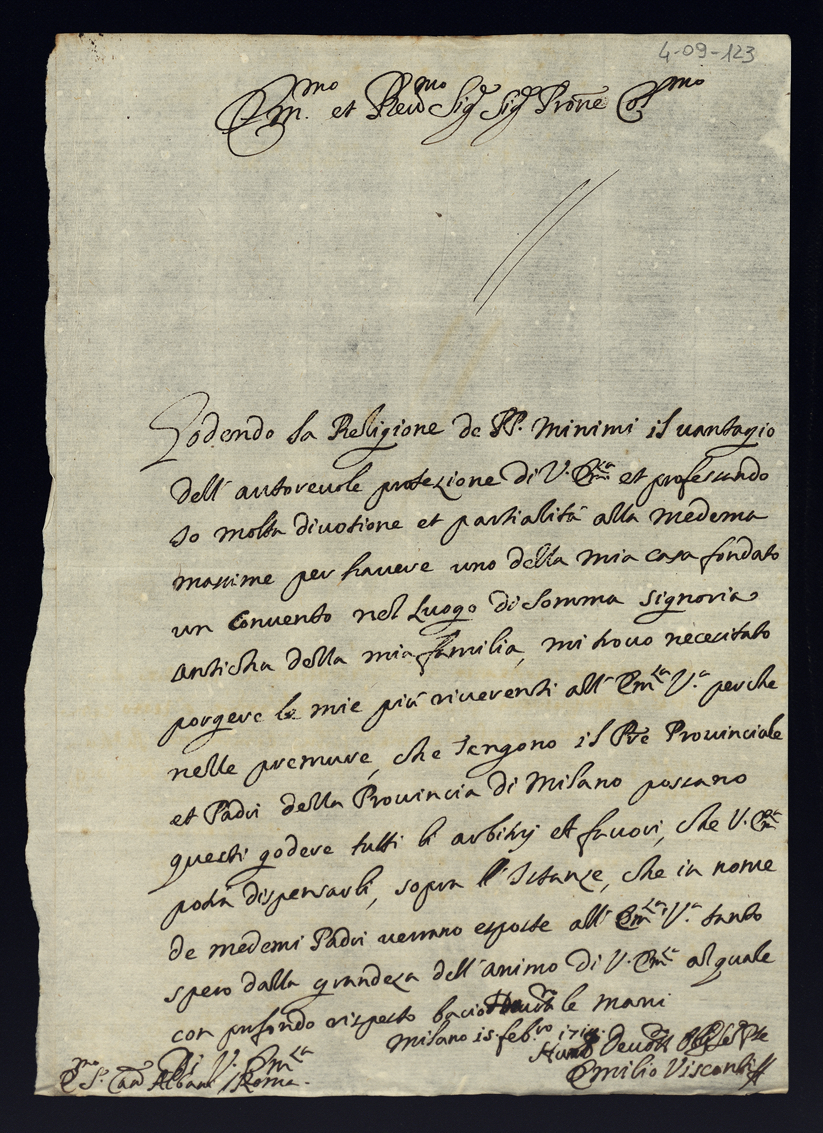 4-09-123
Em.mo et Reu.mo Sig. Sig. Prone Col.mo
Godendo la Religione de PP. Minimi il uantagio
dell' autoreuole protezione di V. Em.za et professando
Io molta diuotione et partialità alla medema
massime per hauere uno della mia casa fondato
un Conuento nel Luogo di Somma Signoria
anticha della mia familia, mi trouo necesitato
porgere le mie più riuerenti all' Em.za V.a perche
nelle premure, che tengono il Pre Prouinciale
et Padri della Prouincia di Milano possano
questi godere tutti li arbitrij et fauori, che V. Em.za
potrà dispensarli, sopra l' Istanze, che in nome
de medemi Padri uerrano esposte all' Em.za V.a tanto
spero dalla grandeza dell' animo di V. Em.za al quale
con profondo rispetto bacio le mani
Milano 15 feb.ro
Di V. Em.za
Hum.o Deuot. Obl. Se.
Em.mo S. Card Albani / Roma.
Emilio Visconti